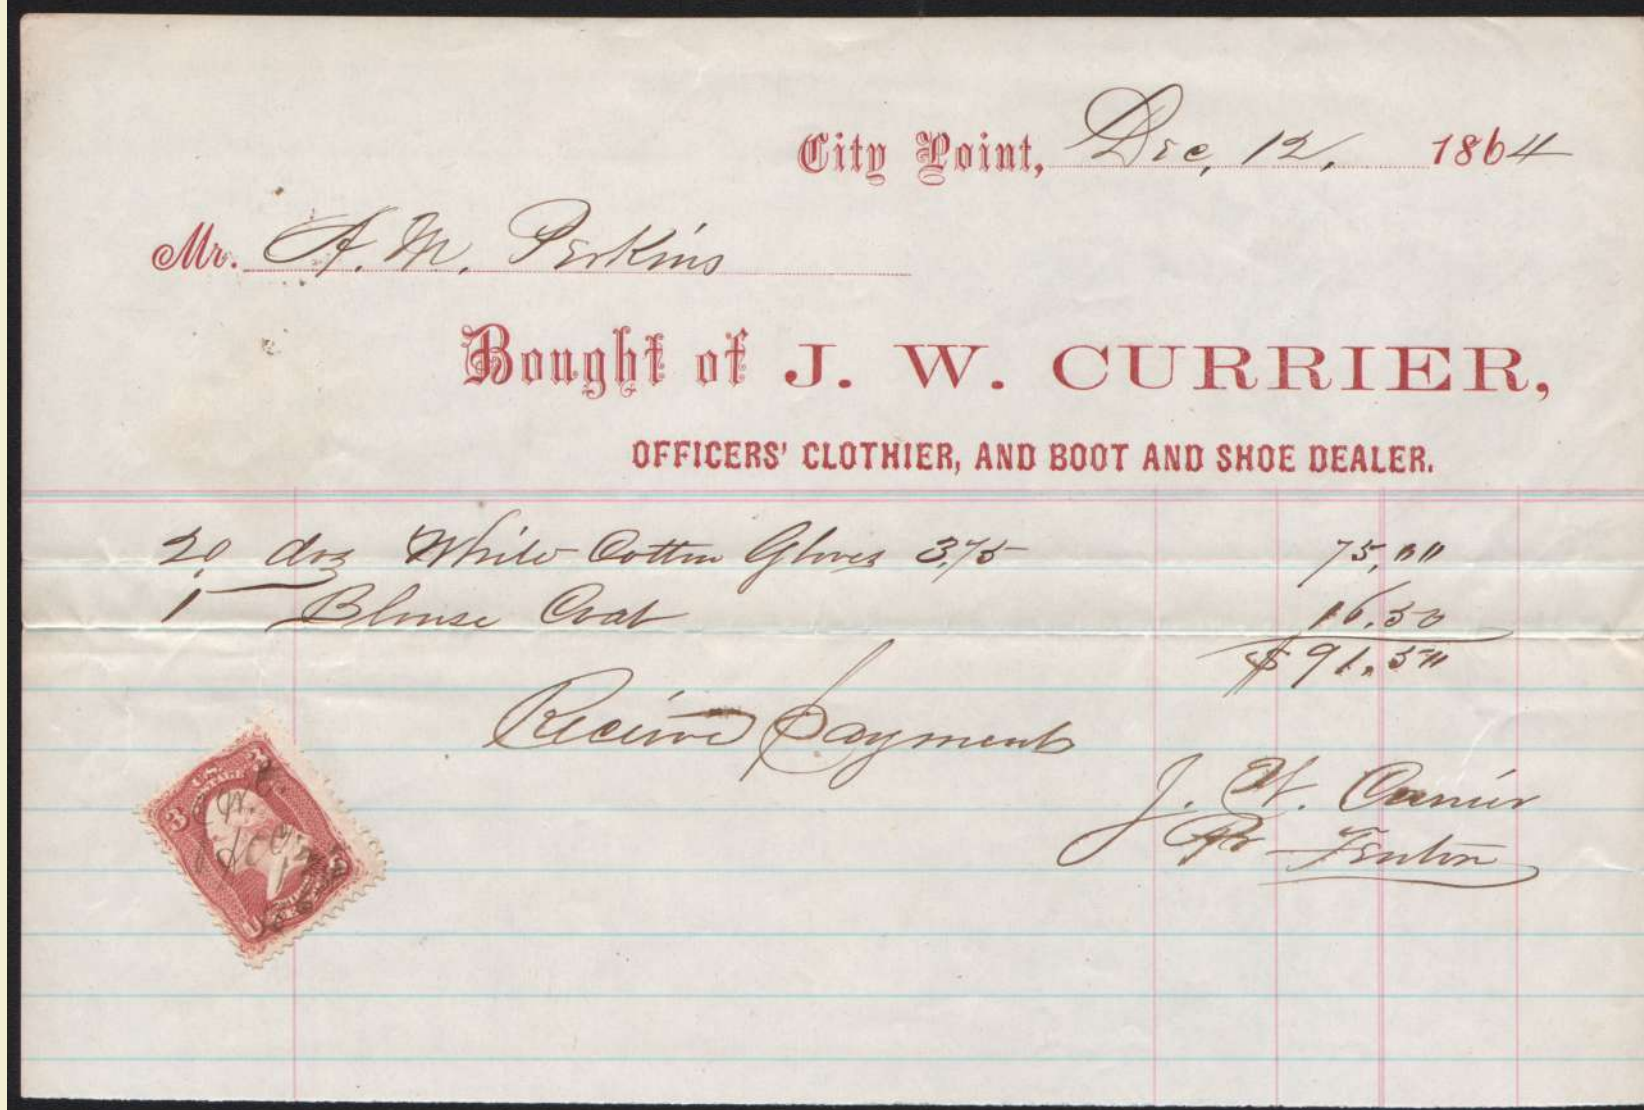 City Point, Dec, 12, 1864
Mr. A. M. Perkins
Bought of J. W. CURRIER,
OFFICERS' CLOTHIER, AND BOOT AND SHOE DEALER.
20 doz White Cotton Gloves 3.75 75,"
1 Blouse Coat 16.50
$91.5"
Received Payment
J. W. Currier
Pr Fenton
3